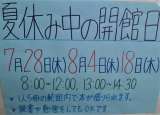 夏休み中の開館日
7月28日(木)8月4日(木)18日(木)
8:00~12:00, 13:00~14:30
・1人5冊の範囲内で本が借りられます。
・読書や勉強をしてもOKです